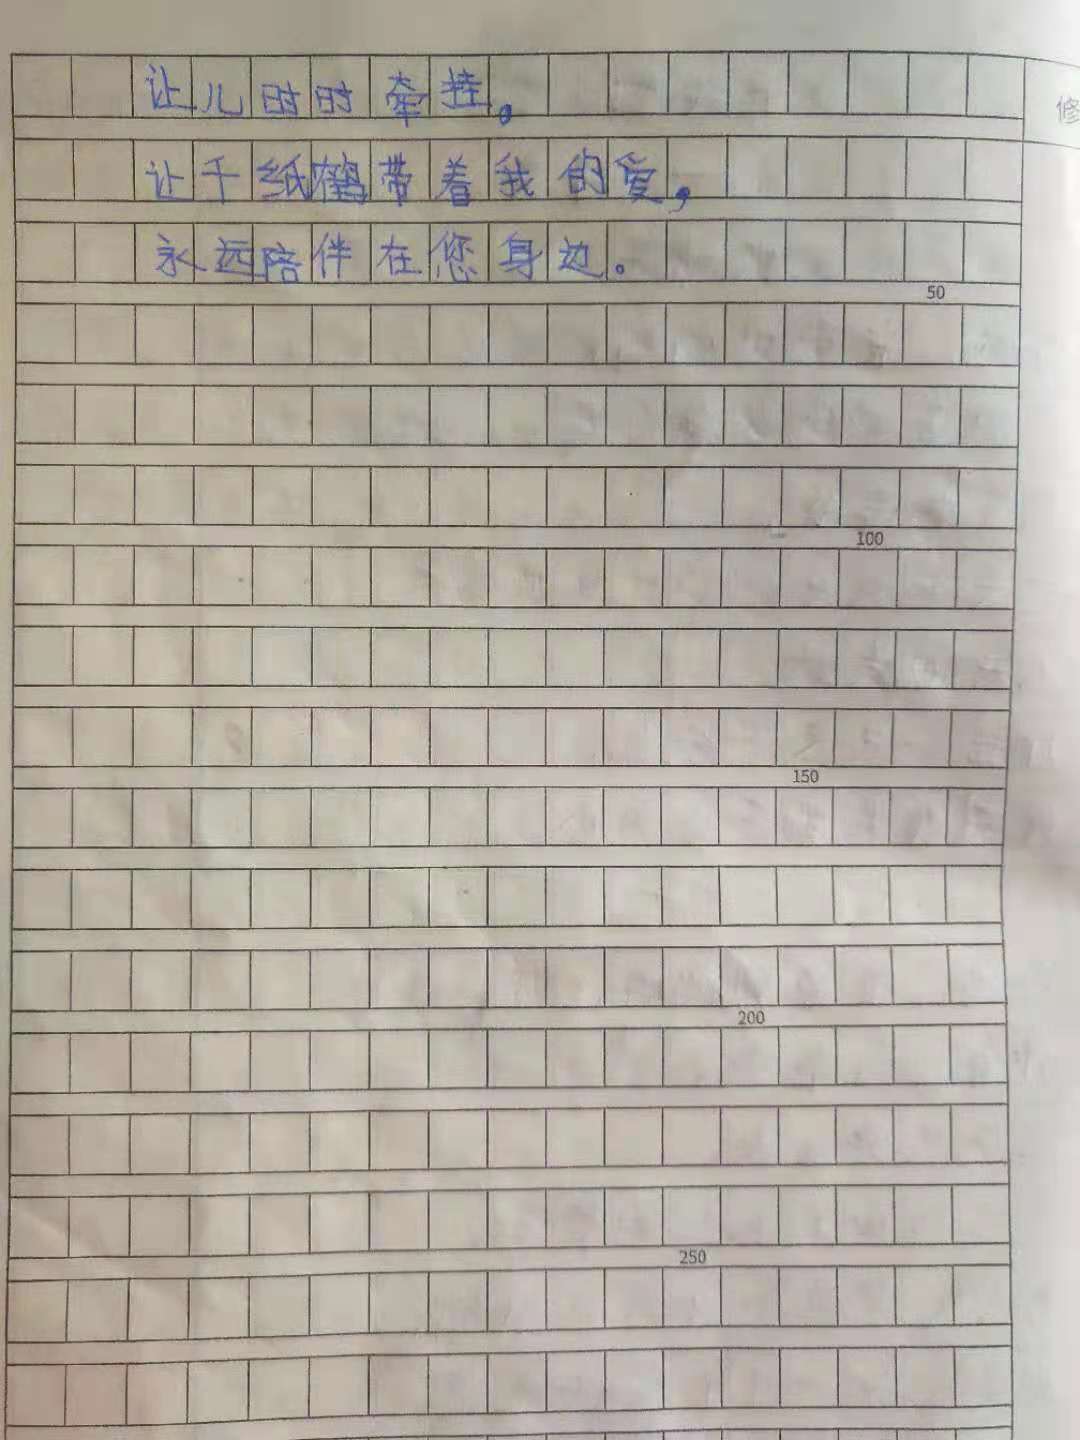 让儿时时牵挂。
修
让千纸鹤带着我的爱，
永远陪伴在您身边。
50
100
150
200
250